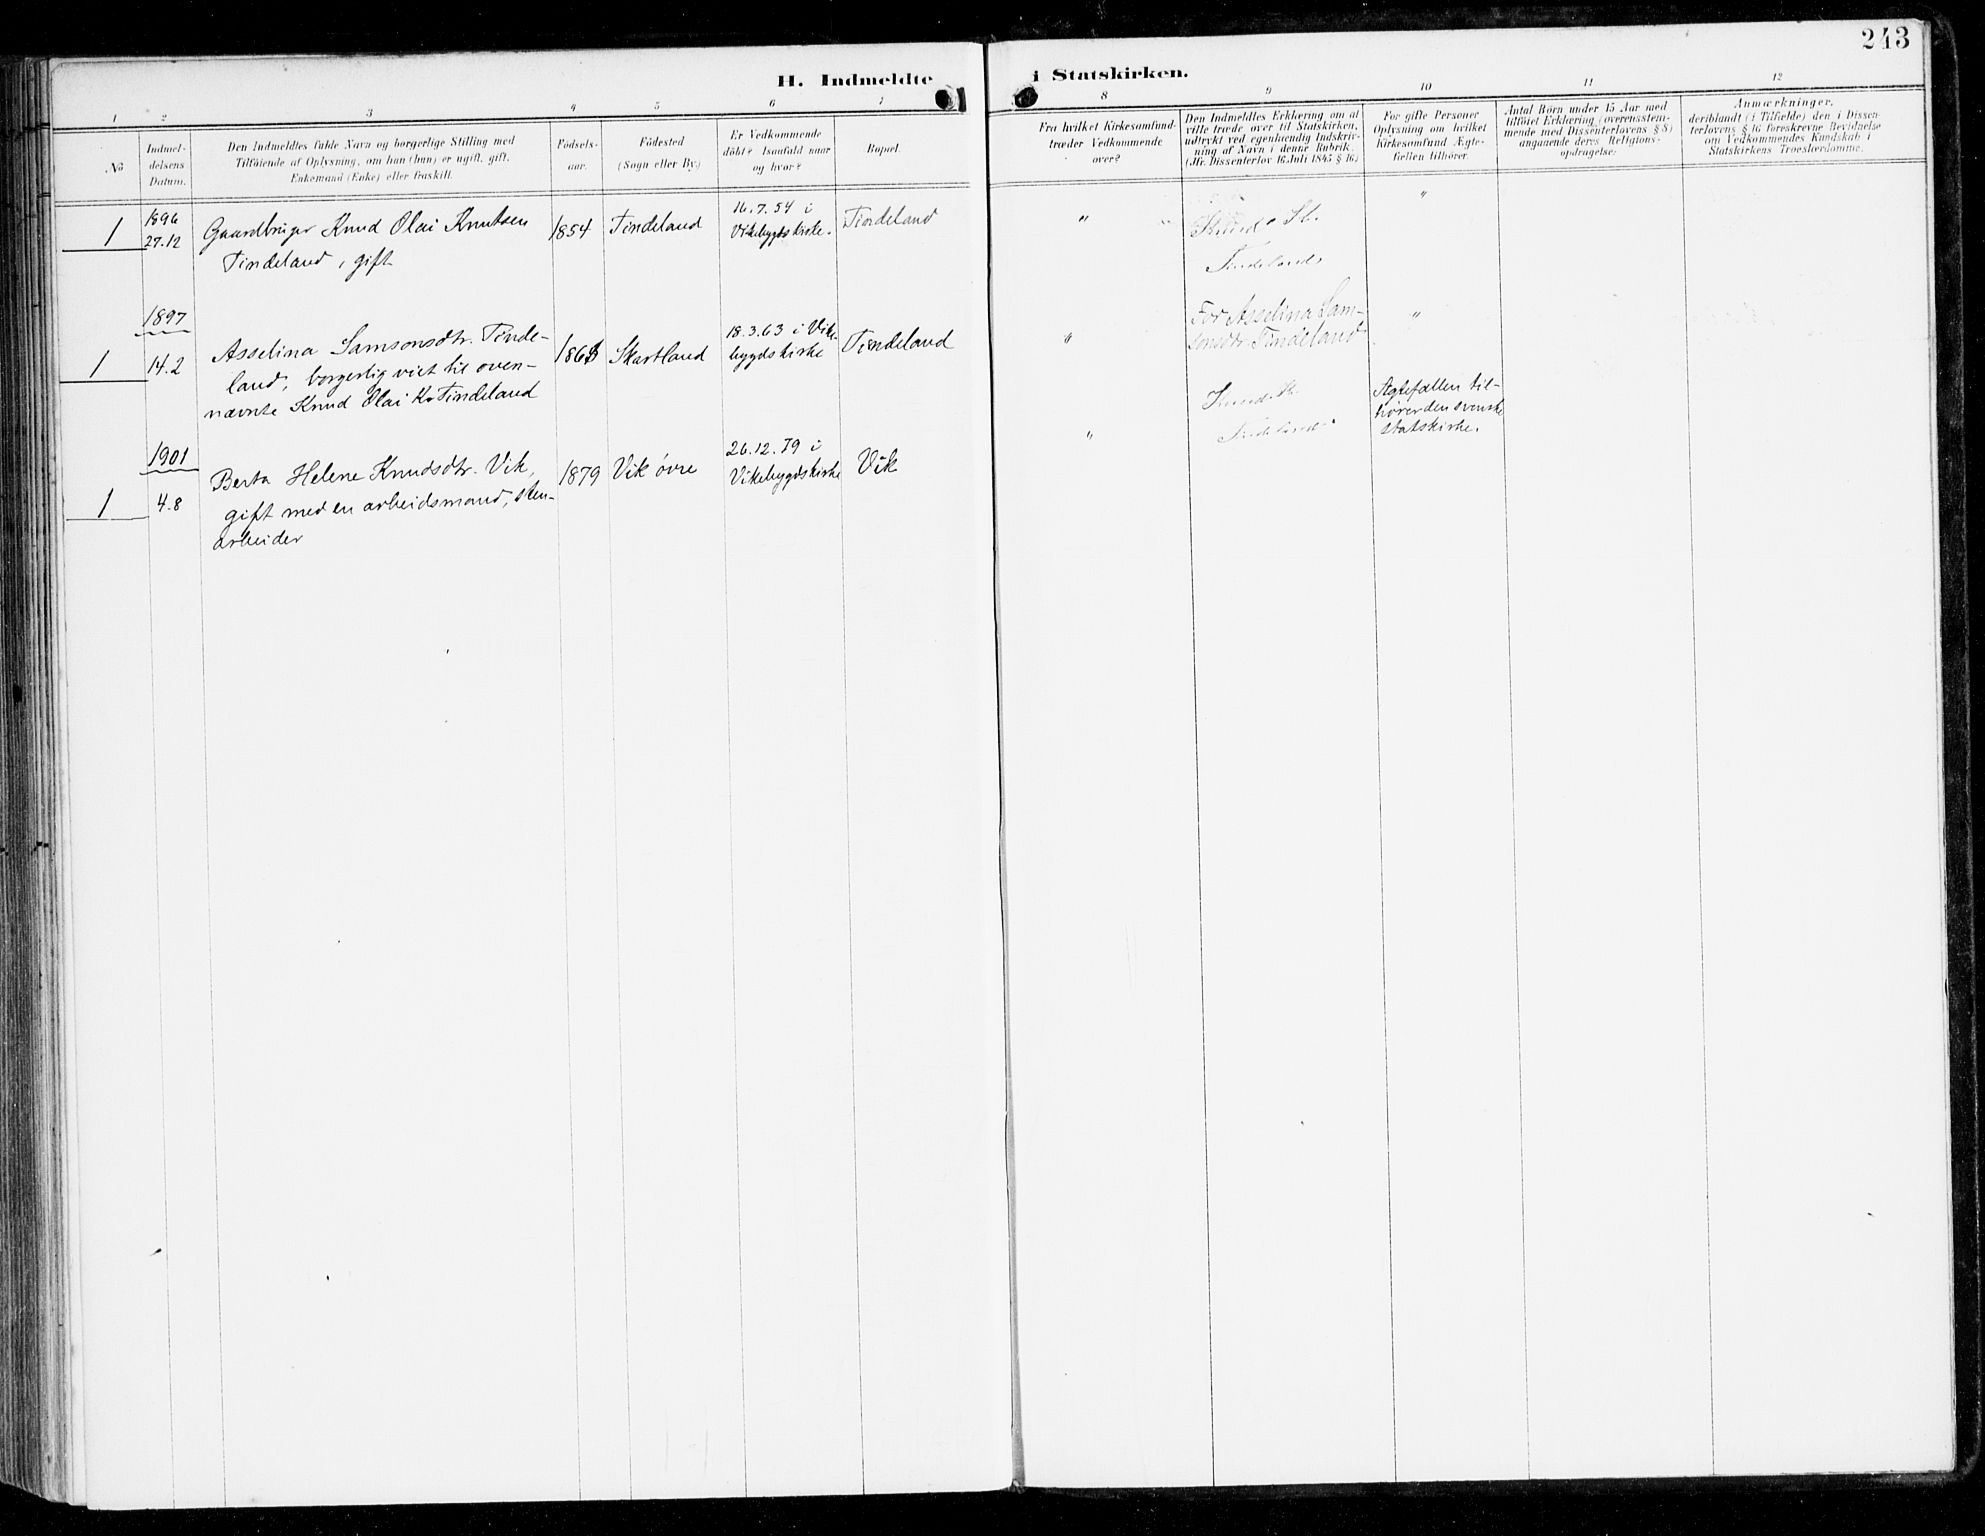 243
H. Indmeldte i Statskirken.
1 2 3 4 5 6 7 8 9 10 11 12
No
Indmel-
delsens
Datum.
Den Indmeldtes fulde Navn og borgerlige Stilling med
Tilföiende af Oplysning, om han (hun) er ugift, gift,
Enkemand (Enke) eller fraskilt.
Födsels-
aar.
Födested
(Sogn eller By.)
Er Vedkommende
döbt? Isaafald naar
og hvor?
Bopæl.
Fra hvilket Kirkesamfund-
træder Vedkommende
over?
Den Indmeldtes Erklæring om at
ville træde over til Statskirken,
udtrykt ved egenhændig Indskriv-
ning af Navn i denne Rubrik.
(Jfr. Dissenterlov 16 Juli 1845 § 16.)
For gifte Personer
Oplysning om hvilket
Kirkesamfund Ægte-
fællen tilhörer.
Antal Börn under 15 Aar med
tilföiet Erklæring (overensstem-
mende med Dissenterlovens § 8)
angaaende deres Religions-
opdragelse.
Anmærkninger,
deriblandt (i Tilfælde) den i Dissen-
terlovens § 16 foreskrevne Bevidnelse
om Vedkommendes Kundskab i
Statskirkens Troeslærdomme.
1
1896
27.12
Gaardbruger Knud Olai Knutsen
Tindeland, gift
1854
Tindeland
16.7.54 i
Vikebygds kirke.
Tindeland
"
Knud
Tindeland
"
1897
1
14.2
Asselina Samsonsdtr. Tinde-
land, borgerlig viet til oven-
nævnte Knud Olai K. Tindeland
1863
Skartland
18.3.63 i Vike-
bygds kirke
Tindeland
"
For Asselina Sam-
sonsdtr. Tindeland
Knud
Tindeland
"
1901
1
4.8
Berta Helene Knudsdtr. Vik,
gift med en arbeidsmand, sten-
arbeider
1879
Vik övre
26.12.79 i
Vikebygds kirke
Vik
"
Ægtefællen til-
hører den svenske
statskirke.